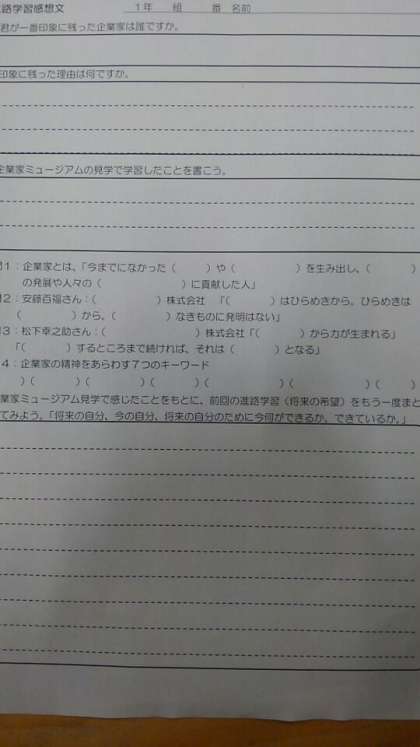 路学習感想文 1年 組 番 名前
君が一番印象に残った企業家は誰ですか。
印象に残った理由は何ですか。
企業家ミュージアムの見学で学習したことを書こう。
1：企業家とは、「今までになかった（ ）や（ ）を生み出し、（ ）
の発展や人々の（ ）に貢献した人」
2：安藤百福さん：（ ）株式会社 「（ ）はひらめきから。ひらめきは
（ ）から、（ ）なきものに発明はない」
3：松下幸之助さん：（ ）株式会社「（ ）から力が生まれる」
「（ ）するところまで続ければ、それは（ ）となる」
4：企業家の精神をあらわす7つのキーワード
）（ ）（ ）（ ）（ ）（ ）（ ）
業家ミュージアム見学で感じたことをもとに、前回の進路学習（将来の希望）をもう一度まと
てみよう。「将来の自分、今の自分、将来の自分のために今何ができるか、できているか。」